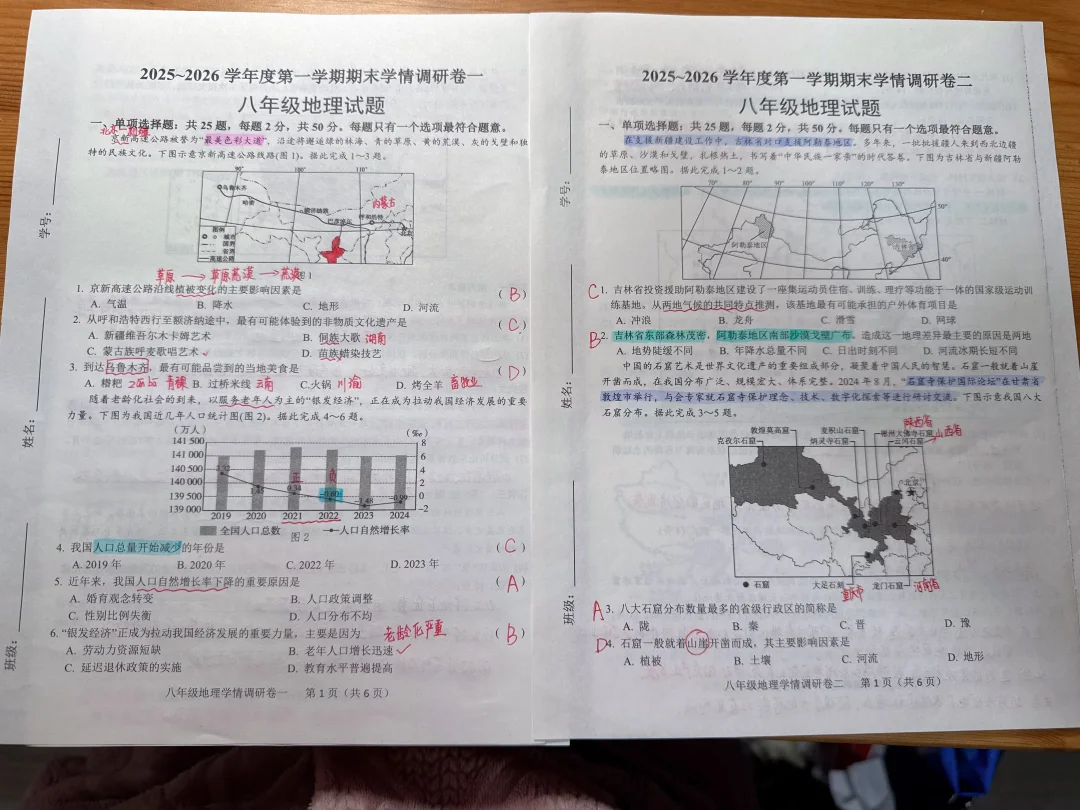 2025~2026 学年度第一学期期末学情调研卷一
八年级地理试题
一、单项选择题：共 25 题，每题 2 分，共 50 分。每题只有一个选项最符合题意。
京新高速公路被誉为“最美色彩大道”，沿途将邂逅绿的林海、青的草原、黄的荒漠、灰的戈壁和独
特的民族文化。下图示意京新高速公路线路(图 1)。据此完成 1～3 题。
90° 100° 110°
乌鲁木齐
哈密
额济纳旗
巴彦淖尔
呼和浩特
内蒙古
图例
城市
国界
省界
高速公路
草原 → 草原荒漠 → 荒漠
1. 京新高速公路沿线植被变化的主要影响因素是 （ B ）
A. 气温 B. 降水 C. 地形 D. 河流
2. 从呼和浩特西行至额济纳途中，最有可能体验到的非物质文化遗产是 （ C ）
A. 新疆维吾尔木卡姆艺术 B. 侗族大歌 湖南
C. 蒙古族呼麦歌唱艺术 ✓ D. 苗族蜡染技艺
3. 到达乌鲁木齐，最有可能品尝到的当地美食是 （ D ）
A. 糌粑 B. 过桥米线 云南 C.火锅 川渝 D. 烤全羊 畜牧业
随着老龄化社会的到来，以服务老年人为主的“银发经济”，正在成为拉动我国经济发展的重要
力量。下图为我国近几年人口统计图(图 2)。据此完成 4～6 题。
（万人） （‰）
141 500 8
141 000 6
140 500 4
140 000 2
139 500 0
139 000 -2
3.32 1.45 0.34 -0.60 -1.48 -0.99
正 负
2019 2020 2021 2022 2023 2024
全国人口总数 人口自然增长率
图 2
4. 我国人口总量开始减少的年份是 （ C ）
A. 2019 年 B. 2020 年 C. 2022 年 D. 2023 年
5. 近年来，我国人口自然增长率下降的重要原因是 （ A ）
A. 婚育观念转变 B. 人口政策调整
C. 性别比例失衡 D. 人口分布不均
6. “银发经济”正成为拉动我国经济发展的重要力量，主要是因为 老龄化严重 （ B ）
A. 劳动力资源短缺 B. 老年人口增长迅速 ✓
C. 延迟退休政策的实施 D. 教育水平普遍提高
八年级地理学情调研卷一 第 1 页（共 6 页）
学号：
姓名：
班级：
2025~2026 学年度第一学期期末学情调研卷二
八年级地理试题
一、单项选择题：共 25 题，每题 2 分，共 50 分。每题只有一个选项最符合题意。
在支援新疆建设工作中，吉林省对口支援阿勒泰地区。多年来，一批批援疆人来到西北边疆
的草原、沙漠和戈壁，扎根热土，书写着“中华民族一家亲”的时代答卷。下图为吉林省与新疆阿勒
泰地区位置略图。据此完成 1～2 题。
70° 80° 90° 100° 110° 120° 130°
50°
40°
阿勒泰地区
吉林省
C 1. 吉林省投资援助阿勒泰地区建设了一座集运动员住宿、训练、理疗等功能于一体的国家级运动训
练基地。从两地气候的共同特点推测，该基地最有可能承担的户外体育项目是
A. 冲浪 B. 龙舟 C. 滑雪 D. 网球
B 2. 吉林省东部森林茂密，阿勒泰地区南部沙漠戈壁广布。造成这一地理差异最主要的原因是两地
A. 地势陡缓不同 B. 年降水总量不同 C. 日出时刻不同 D. 河流冰期长短不同
中国的石窟艺术是世界文化遗产的重要组成部分，凝聚着中国人民的智慧。石窟一般就着山崖
开凿而成，在我国分布广泛、规模宏大、体系完整。2024 年 8 月，“石窟寺保护国际论坛”在甘肃省
敦煌市举行，与会专家就石窟寺保护理念、技术、数字化探索等进行研讨交流。下图示意我国八大
石窟分布。据此完成 3～5 题。
陕西省
敦煌莫高窟 麦积山石窟 彬州大佛寺石窟 山西省
克孜尔石窟 炳灵寺石窟 云冈石窟
北京
石窟 大足石刻 龙门石窟
重庆市 河南省
A 3. 八大石窟分布数量最多的省级行政区的简称是
A. 陇 B. 秦 C. 晋 D. 豫
D 4. 石窟一般就着山崖开凿而成，其主要影响因素是
A. 植被 B. 土壤 C. 河流 D. 地形
八年级地理学情调研卷二 第 1 页（共 6 页）
学号：
姓名：
班级：